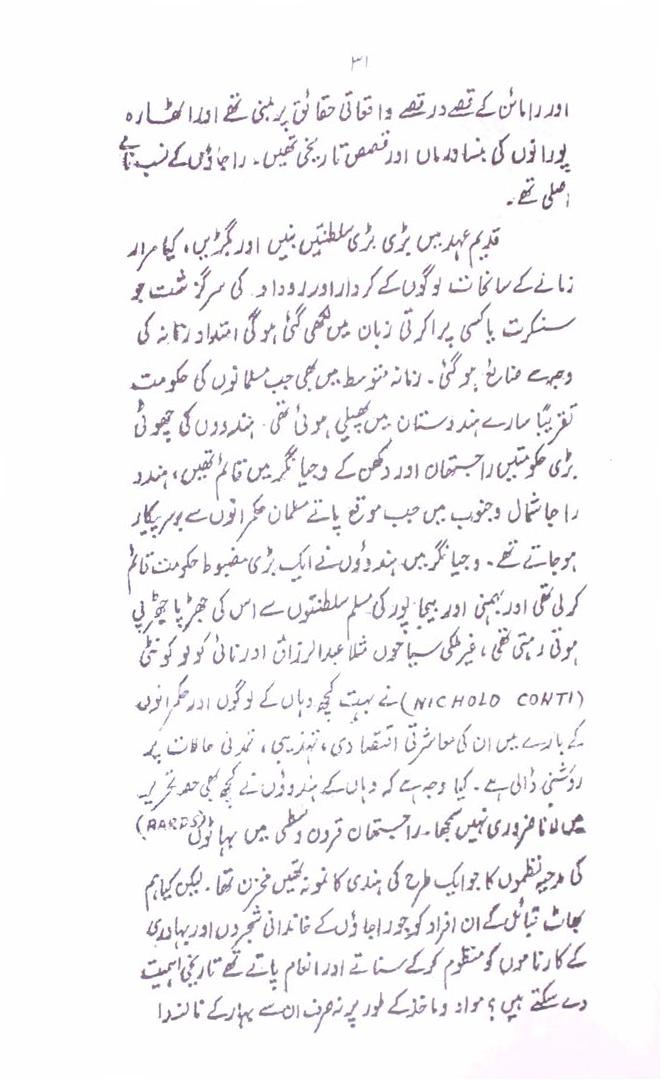 ۳۱
اور رامائن کے قصے در قصے واقعاتی حقائق پر مبنی تھے اور اٹھارہ
پورانوں کی بنیاد وہاں اور قصص تاریخی تھیں۔ راجاؤں کے نسب نامے
اصلی تھے۔
قدیم عہد میں بڑی بڑی سلطنتیں بنیں اور بگڑیں، کیا مرار
زمانے کے سانحات لوگوں کے کردار اور روداد کی سرگزشت جو
سنسکرت یا کسی پراکرتی زبان میں لکھی گئی ہوگی امتداد زمانہ کی
وجہ سے ضائع ہوگئی۔ زمانہ متوسط میں بھی جب مسلمانوں کی حکومت
تقریباً سارے ہندوستان میں پھیلی ہوئی تھی۔ ہندوؤں کی چھوٹی
بڑی حکومتیں راجستھان اور دکھن کے وجیانگر میں قائم تھیں، ہندو
راجا شمال و جنوب میں جب موقع پاتے مسلمان حکمرانوں سے برسرپیکار
ہوجاتے تھے۔ وجیانگر میں ہندوؤں نے ایک بڑی مضبوط حکومت قائم
کرلی تھی اور بہمنی اور بیجاپور کی مسلم سلطنتوں سے اس کی جھڑپا جھڑپی
ہوتی رہتی تھی، غیر ملکی سیاحوں مثلاً عبدالرزاق اور نائی کولو کونٹی
(NICHOLO CONTI) نے بہت کچھ وہاں کے لوگوں اور حکمرانوں
کے بارے میں ان کی معاشرتی اقتصادی، تہذیبی، تمدنی حالات پر
روشنی ڈالی ہے۔ کیا وجہ ہے کہ وہاں کے ہندوؤں نے کچھ بھی حد تحریر
میں لانا ضروری نہیں سمجھا۔ راجستھان قرون وسطی میں بھاٹوں (BARDS)
کی مدحیہ نظموں کا جو ایک طرح کی ہندی کا نمونہ تھیں مخزن تھا۔ لیکن کیا ہم
بھاٹ قبائل کے ان افراد کو جو راجاؤں کے خاندانی شجروں اور بہادری
کے کارناموں کو منظوم کرکے سناتے اور انعام پاتے تھے تاریخی اہمیت
دے سکتے ہیں؟ مواد و ماخذ کے طور پر نہ صرف ان سے بہار کے نالندا